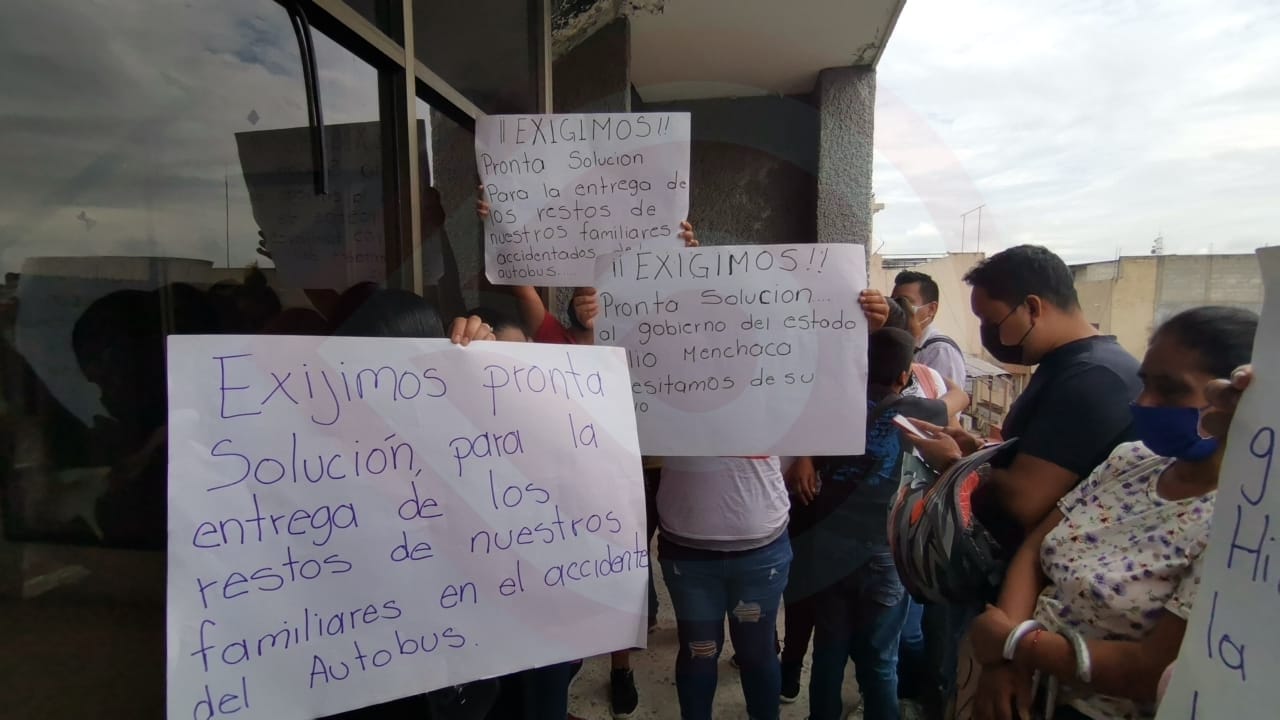 ¡¡EXIGIMOS!!
Pronta Solucion
Para la entrega de
los restos de
nuestros familiares
accidentados del
autobus....
¡¡EXIGIMOS!!
Pronta Solucion....
al gobierno del estado
lio Menchaca
esitamos de su
yo
Exijimos pronta
Solución, para la
entrega de los
restos de nuestros
familiares en el accidente
del Autobus.
g
Hi
la